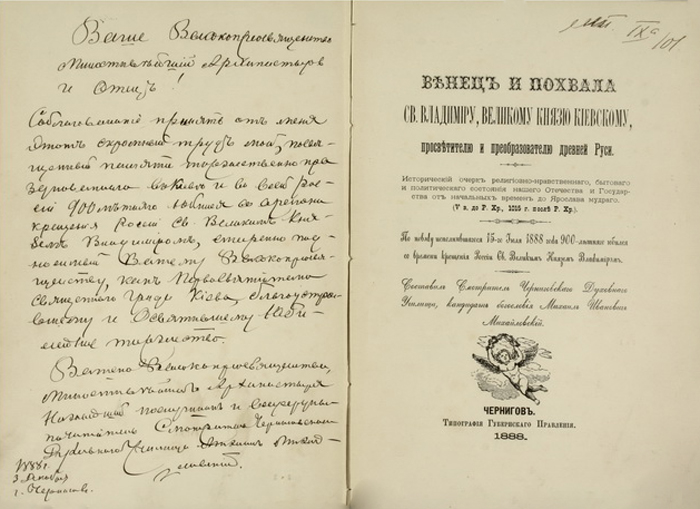 Ваше Высокопреосвященство
Милостивѣйшій Архипастырь
и Отецъ!
принять отъ меня
этотъ скромный трудъ мой, посвя-
щенный памяти торжественно пра-
въ Кіевѣ и во всей Рос-
сіи 900 лѣтняго юбилея со времени
крещенія Россіи Св. Великимъ Кня-
земъ Владиміромъ,
Вашему Высокопреосвя-
щенству, какъ
Священнаго Града Кіева,
и Освятившему юби-
лейное торжество.
Вашего Высокопреосвященства,
Милостивѣйшаго Архипастыря
и
почитатель Смотритель Черниговскаго
Духовнаго Училища Михаилъ Михай-
ловскій.
1888 г.
3 Декабря
г. Черниговъ.
IXа/01
ВѢНЕЦЪ И ПОХВАЛА
СВ. ВЛАДИМІРУ, ВЕЛИКОМУ КНЯЗЮ КІЕВСКОМУ,
просвѣтителю и преобразователю древней Руси.
Историческій очеркъ религіозно-нравственнаго, бытоваго
и политическаго состоянія нашего Отечества и Государ-
ства отъ начальныхъ временъ до Ярослава мудраго.
(V в. до Р. Хр., 1015 г. послѣ Р. Хр.).
По поводу исполнившагося 15-го Іюля 1888 года 900-лѣтняго юбилея
со времени крещенія Россіи Св. Великимъ Княземъ Владиміромъ.
Составилъ Смотритель Черниговскаго Духовнаго
Училища, кандидатъ богословія Михаилъ Ивановичъ
Михайловскій.
ЧЕРНИГОВЪ.
Типографія Губернскаго Правленія.
1888.